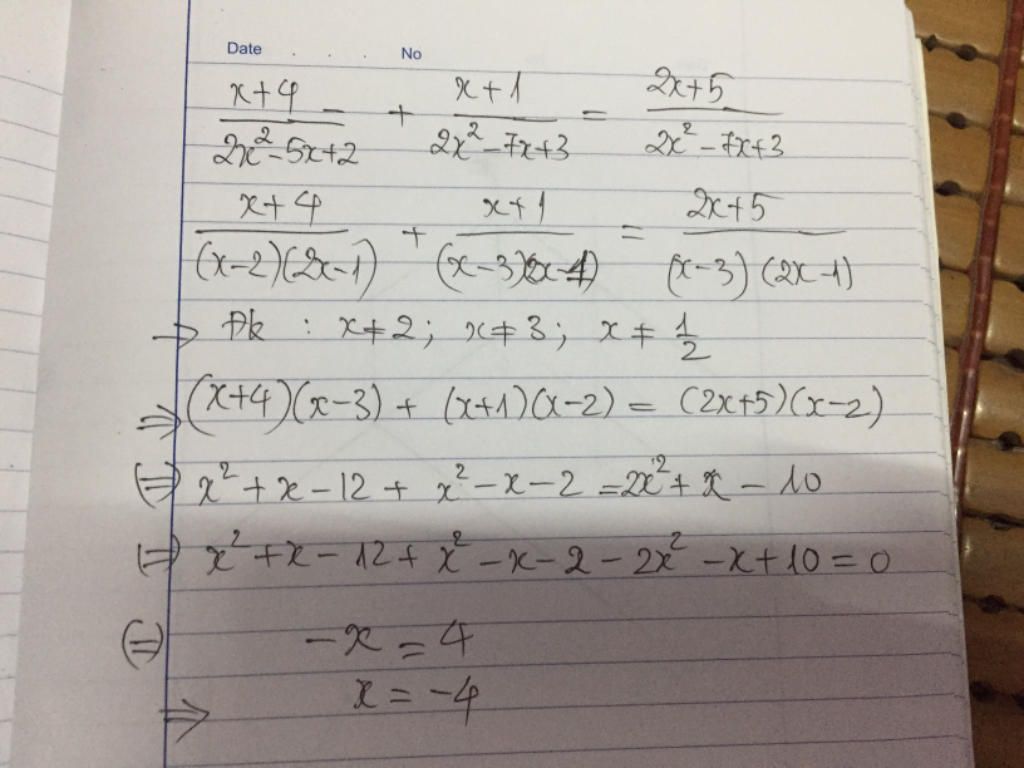 Date . . . No
x+4 / 2x²-5x+2 + x+1 / 2x²-7x+3 = 2x+5 / 2x²-7x+3
x+4 / (x-2)(2x-1) + x+1 / (x-3)(2x-1) = 2x+5 / (x-3)(2x-1)
→ Đk : x≠2; x≠3; x≠ 1/2
⇒ (x+4)(x-3) + (x+1)(x-2) = (2x+5)(x-2)
(=) x²+x-12+ x²-x-2 =2x²+x-10
(=) x²+x-12+x²-x-2-2x²-x+10=0
(=) -x = 4
⇒ x = -4